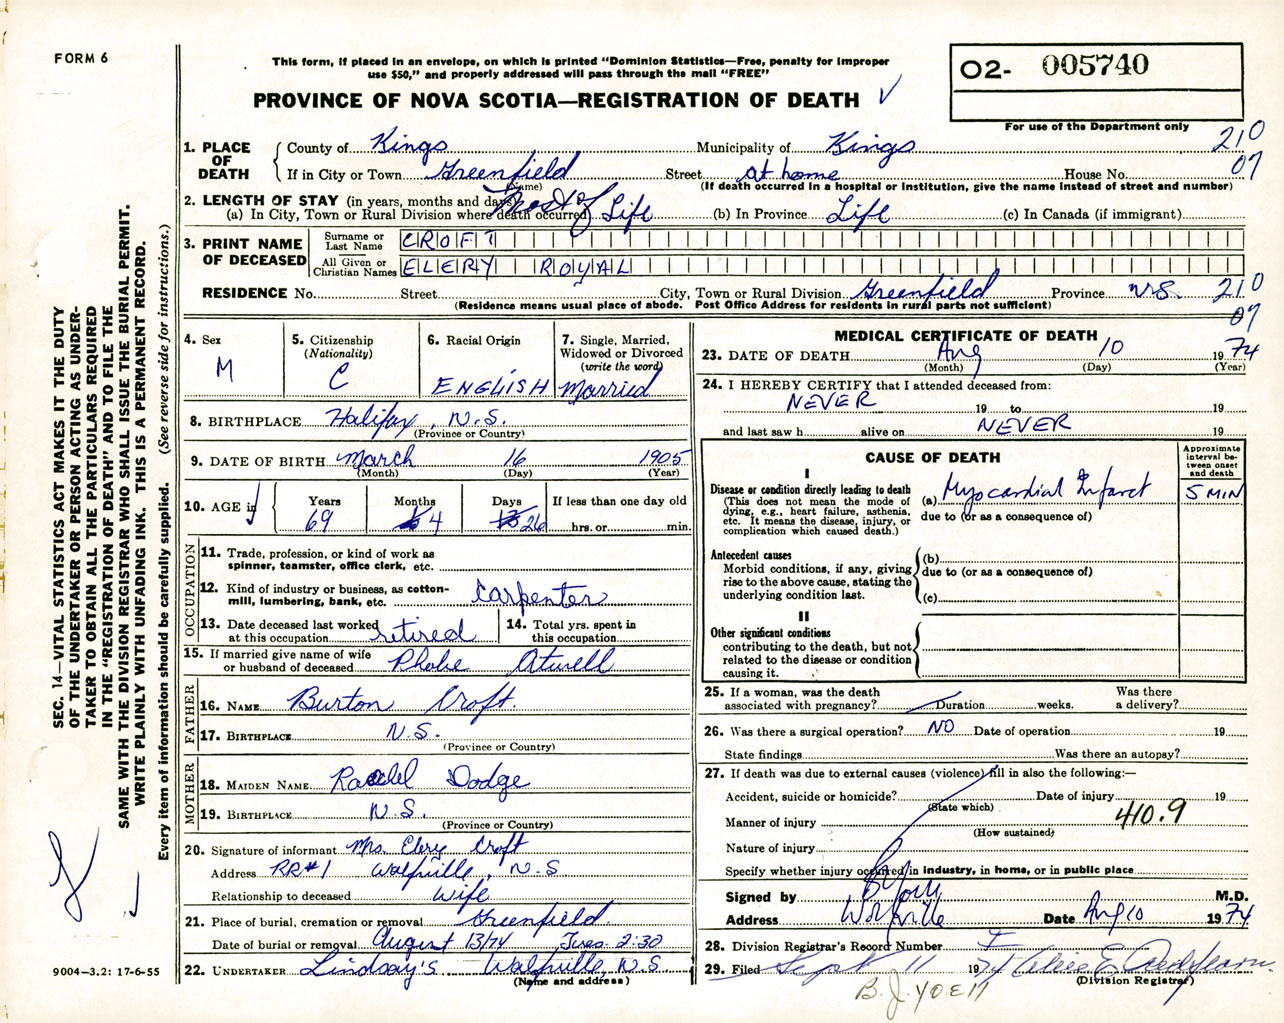 FORM 6
This form, if placed in an envelope, on which is printed "Dominion Statistics—Free, penalty for improper
use $50," and properly addressed will pass through the mail "FREE"
PROVINCE OF NOVA SCOTIA—REGISTRATION OF DEATH
O2- 005740
For use of the Department only
1. PLACE OF DEATH
County of Kings Municipality of Kings 210
If in City or Town Greenfield Street at home House No. 07
(Name) (If death occurred in a hospital or institution, give the name instead of street and number)
2. LENGTH OF STAY (in years, months and days)
(a) In City, Town or Rural Division where death occurred Most of Life (b) In Province Life (c) In Canada (if immigrant)
3. PRINT NAME OF DECEASED
Surname or Last Name CROFT
All Given or Christian Names ELERY ROYAL
RESIDENCE No. Street City, Town or Rural Division Greenfield Province N.S. 210
(Residence means usual place of abode. Post Office Address for residents in rural parts not sufficient) 07
4. Sex M
5. Citizenship (Nationality) C
6. Racial Origin ENGLISH
7. Single, Married, Widowed or Divorced (write the word) Married
8. BIRTHPLACE Halifax, N.S.
(Province or Country)
9. DATE OF BIRTH March 16 1905
(Month) (Day) (Year)
10. AGE in Years 69 Months 4 Days 26 If less than one day old hrs. or min.
OCCUPATION
11. Trade, profession, or kind of work as
spinner, teamster, office clerk, etc.
12. Kind of industry or business, as cotton-
mill, lumbering, bank, etc. Carpenter
13. Date deceased last worked
at this occupation retired
14. Total yrs. spent in
this occupation
15. If married give name of wife
or husband of deceased Phobe Atwell
FATHER
16. NAME Burton Croft.
17. BIRTHPLACE N.S.
(Province or Country)
MOTHER
18. MAIDEN NAME Rachel Dodge
19. BIRTHPLACE N.S.
(Province or Country)
20. Signature of informant Mrs. Elery Croft
Address RR#1 Wolfville, N.S
Relationship to deceased Wife
21. Place of burial, cremation or removal Greenfield
Date of burial or removal August 13/74 Tues. 2:30
22. UNDERTAKER Lindsay's Wolfville, N.S.
(Name and address)
MEDICAL CERTIFICATE OF DEATH
23. DATE OF DEATH Aug 10 1974
(Month) (Day) (Year)
24. I HEREBY CERTIFY that I attended deceased from:
NEVER 19 to 19
and last saw h alive on NEVER 19
CAUSE OF DEATH
Approximate interval between onset and death
I
Disease or condition directly leading to death
(This does not mean the mode of
dying, e.g., heart failure, asthenia,
etc. It means the disease, injury, or
complication which caused death.)
(a) Myocardial Infarct 5 MIN
due to (or as a consequence of)
Antecedent causes
Morbid conditions, if any, giving
rise to the above cause, stating the
underlying condition last.
(b)
due to (or as a consequence of)
(c)
II
Other significant conditions
contributing to the death, but not
related to the disease or condition
causing it.
25. If a woman, was the death
associated with pregnancy? Duration weeks. Was there a delivery?
26. Was there a surgical operation? NO Date of operation 19
State findings Was there an autopsy?
27. If death was due to external causes (violence) fill in also the following:—
Accident, suicide or homicide? Date of injury 19
(State which)
Manner of injury 410.9
(How sustained)
Nature of injury
Specify whether injury occurred in industry, in home, or in public place
Signed by M.D.
Address Wolfville Date Aug 10 1974
28. Division Registrar's Record Number
29. Filed Sept 11 1974
(Division Registrar)
SEC. 14—VITAL STATISTICS ACT MAKES IT THE DUTY
OF THE UNDERTAKER OR PERSON ACTING AS UNDER-
TAKER TO OBTAIN ALL THE PARTICULARS REQUIRED
IN THE "REGISTRATION OF DEATH" AND TO FILE THE
SAME WITH THE DIVISION REGISTRAR WHO SHALL ISSUE THE BURIAL PERMIT.
WRITE PLAINLY WITH UNFADING INK. THIS IS A PERMANENT RECORD.
Every item of information should be carefully supplied. (See reverse side for instructions.)
9004—3.2: 17-6-55